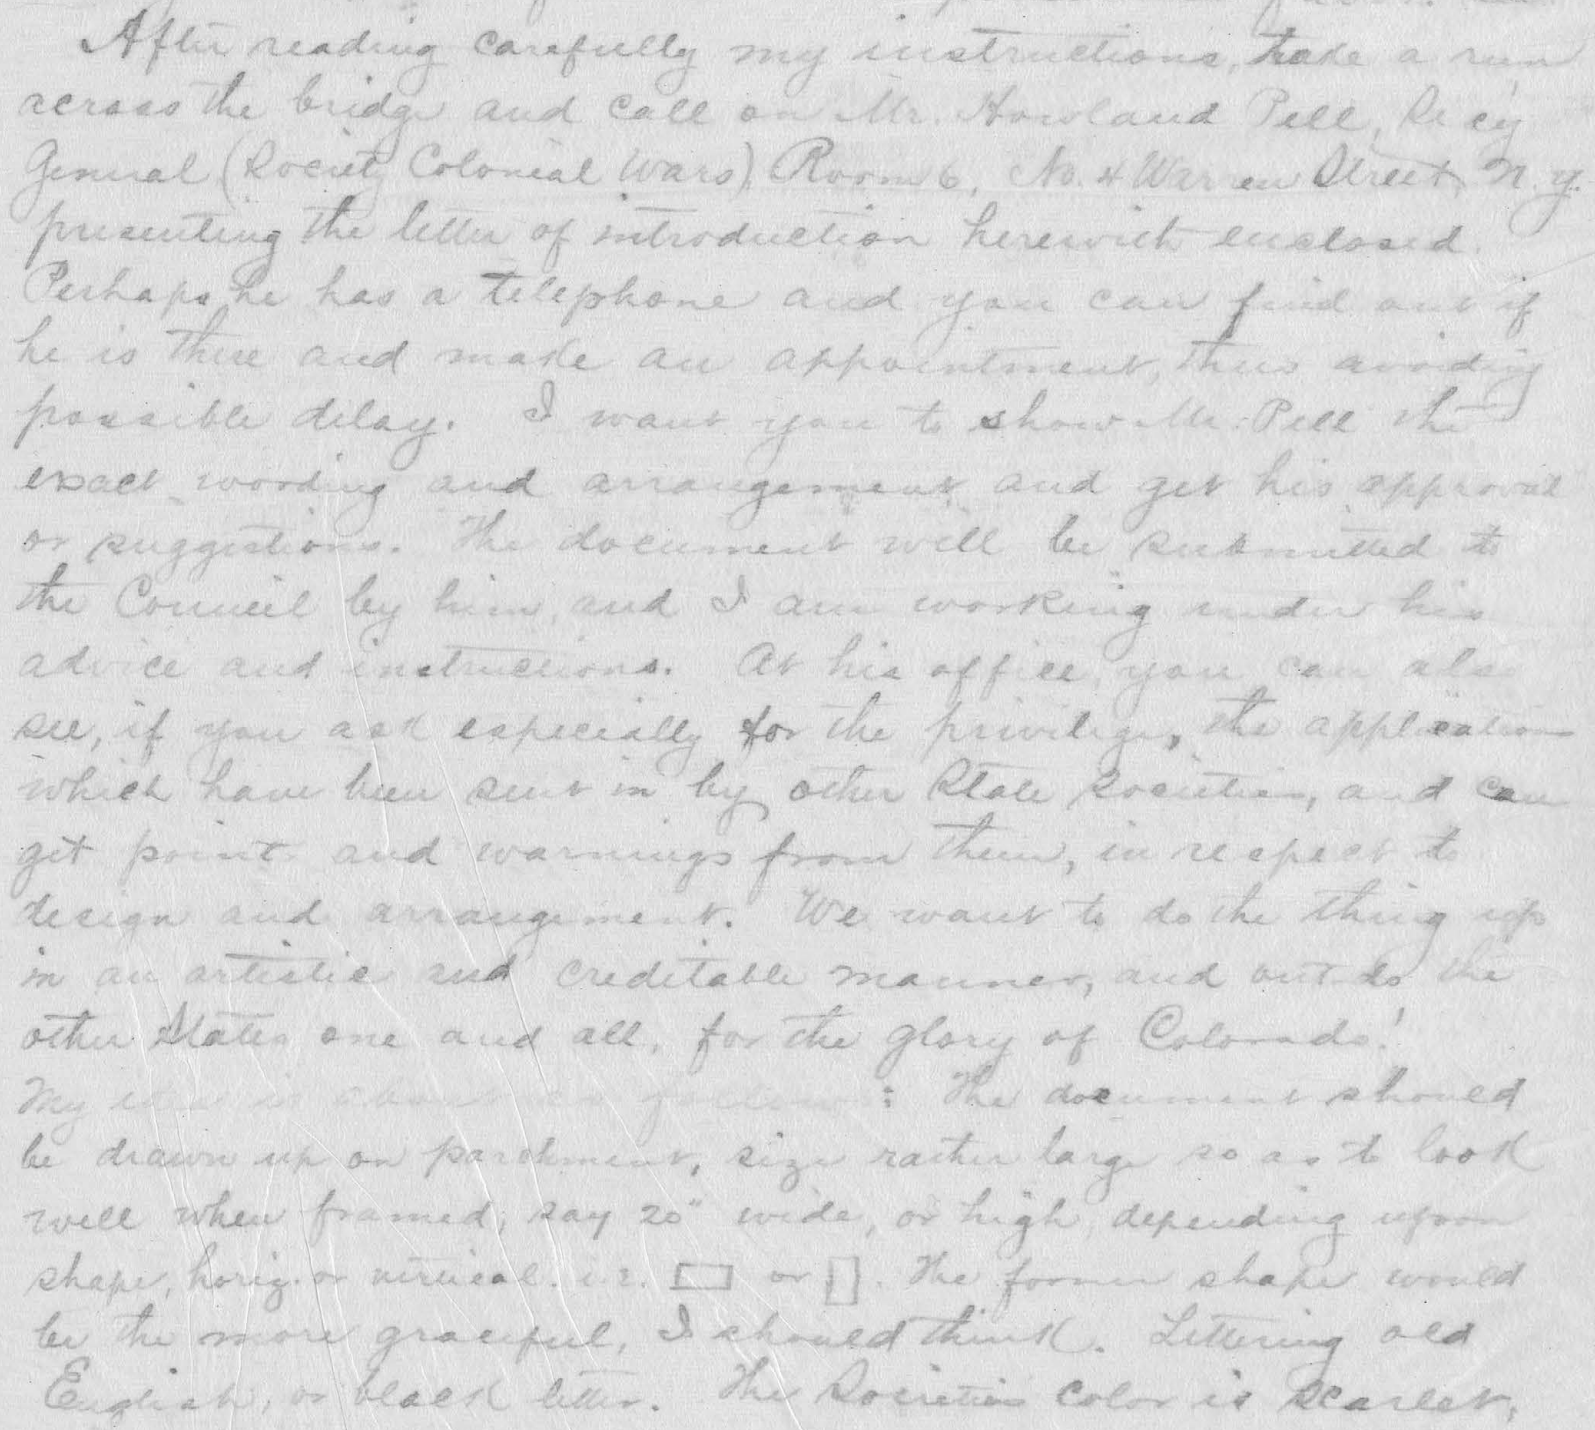 After reading carefully my instructions, take a run
across the bridge and call on Mr. Howland Pell, Sec'y
General (Society Colonial Wars) Room 6, No. 4 Warren Street, N.Y.
presenting the letter of introduction herewith enclosed.
Perhaps he has a telephone and you can find out if
he is there and make an appointment, thus avoiding
possible delay. I want you to show Mr. Pell the
exact wording and arrangement and get his approval
or suggestions. The document will be submitted to
the Council by him, and I am working under his
advice and instructions. At his office, you can also
see, if you ask especially for the privilege, the applications
which have been sent in by other State Societies, and can
get points and warnings from them, in respect to
design and arrangement. We want to do the thing up
in an artistic and creditable manner, and out-do the
other States one and all, for the glory of Colorado!
My idea is about as follows: The document should
be drawn up on parchment, size rather large so as to look
well when framed, say 20" wide, or high, depending upon
shape, horiz. or vertical. i.e. or . The former shape would
be the more graceful, I should think. Lettering old
English, or black letter. The Societies color is scarlet,